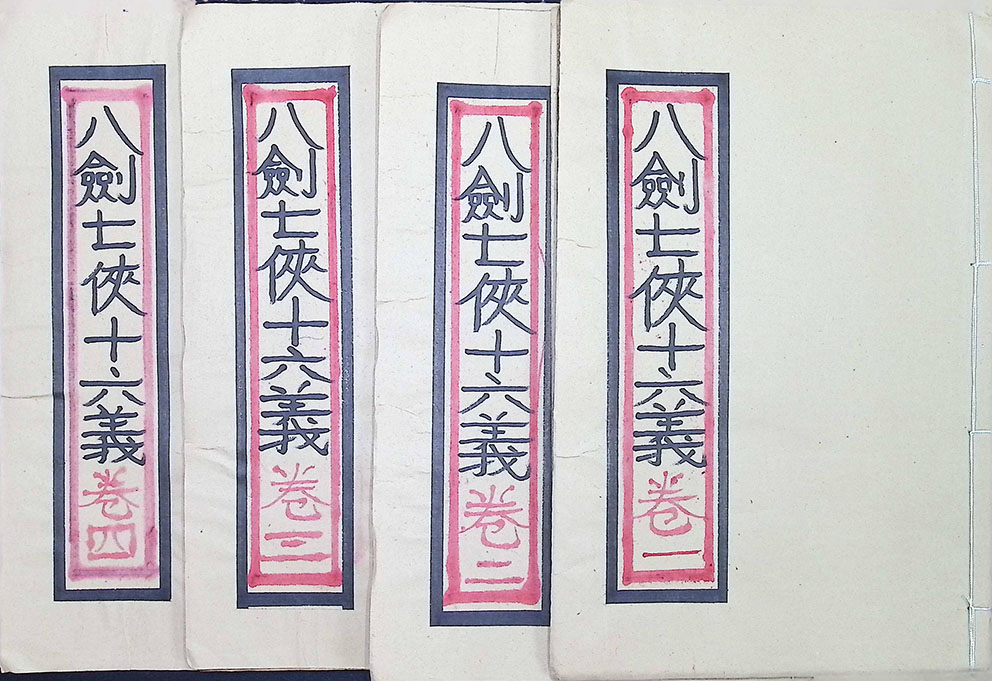 八劍七俠十六義卷一
八劍七俠十六義卷二
八劍七俠十六義卷三
八劍七俠十六義卷四